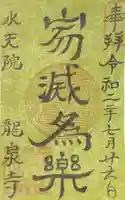 奉拜 令和二年七月廿六日
寂滅為樂
水天院 龍泉寺